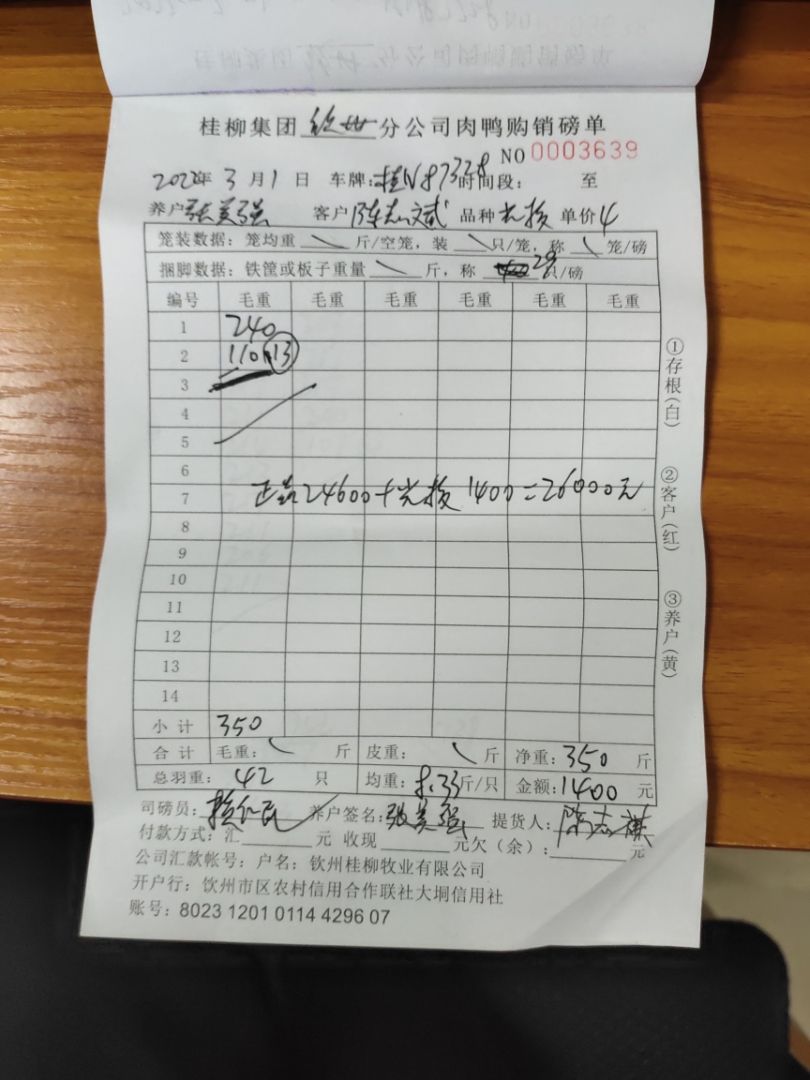 桂柳集团 钦州 分公司肉鸭购销磅单
NO 0003639
2022年 3 月 1 日 车牌:桂N87328 时间段: 至
养户 张美强 客户 陈志斌 品种 光扳 单价 4
笼装数据:笼均重 \ 斤/空笼,装 \ 只/笼,称 \ 笼/磅
捆脚数据:铁筐或板子重量 \ 斤,称 29 只/磅
编号 毛重 毛重 毛重 毛重 毛重 毛重
1 240
2 110 13
3
4
5
6
7 正品24600+光扳1400=26000元
8
9
10
11
12
13
14
小计 350
合计 毛重: \ 斤 皮重: \ 斤 净重:350 斤
总羽重: 42 只 均重:8.33斤/只 金额:1400 元
司磅员: 养户签名:张美强 提货人:陈志
付款方式:汇 元 收现 元欠(余): 元
公司汇款帐号:户名:钦州桂柳牧业有限公司
开户行:饮州市区农村信用合作联社大垌信用社
账号:8023 1201 0114 4296 07
①存根(白)
②客户(红)
③养户(黄)